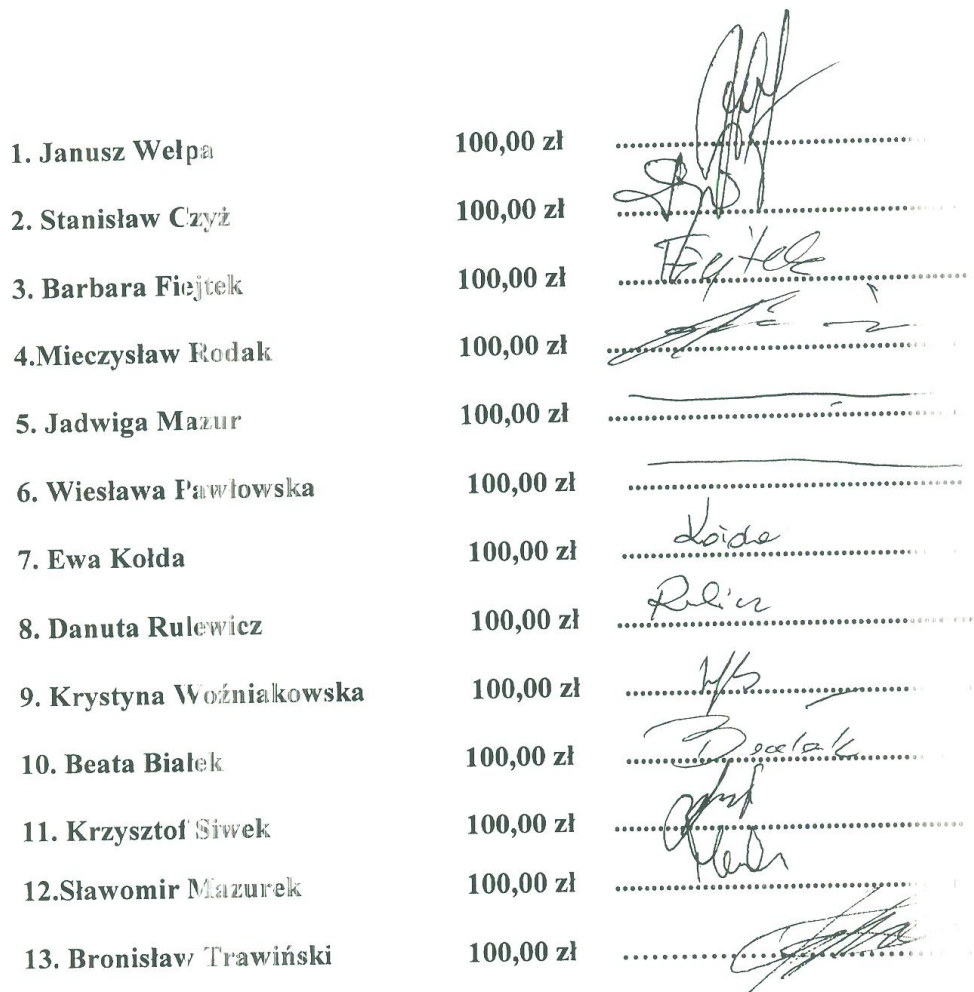 1. Janusz Wełpa 100,00 zł
2. Stanisław Czyż 100,00 zł
3. Barbara Fiejtek 100,00 zł Fiejtek
4.Mieczysław Rodak 100,00 zł
5. Jadwiga Mazur 100,00 zł
6. Wiesława Pawłowska 100,00 zł
7. Ewa Kołda 100,00 zł Kołda
8. Danuta Rulewicz 100,00 zł
9. Krystyna Woźniakowska 100,00 zł
10. Beata Białek 100,00 zł Białek
11. Krzysztof Siwek 100,00 zł
12.Sławomir Mazurek 100,00 zł
13. Bronisław Trawiński 100,00 zł